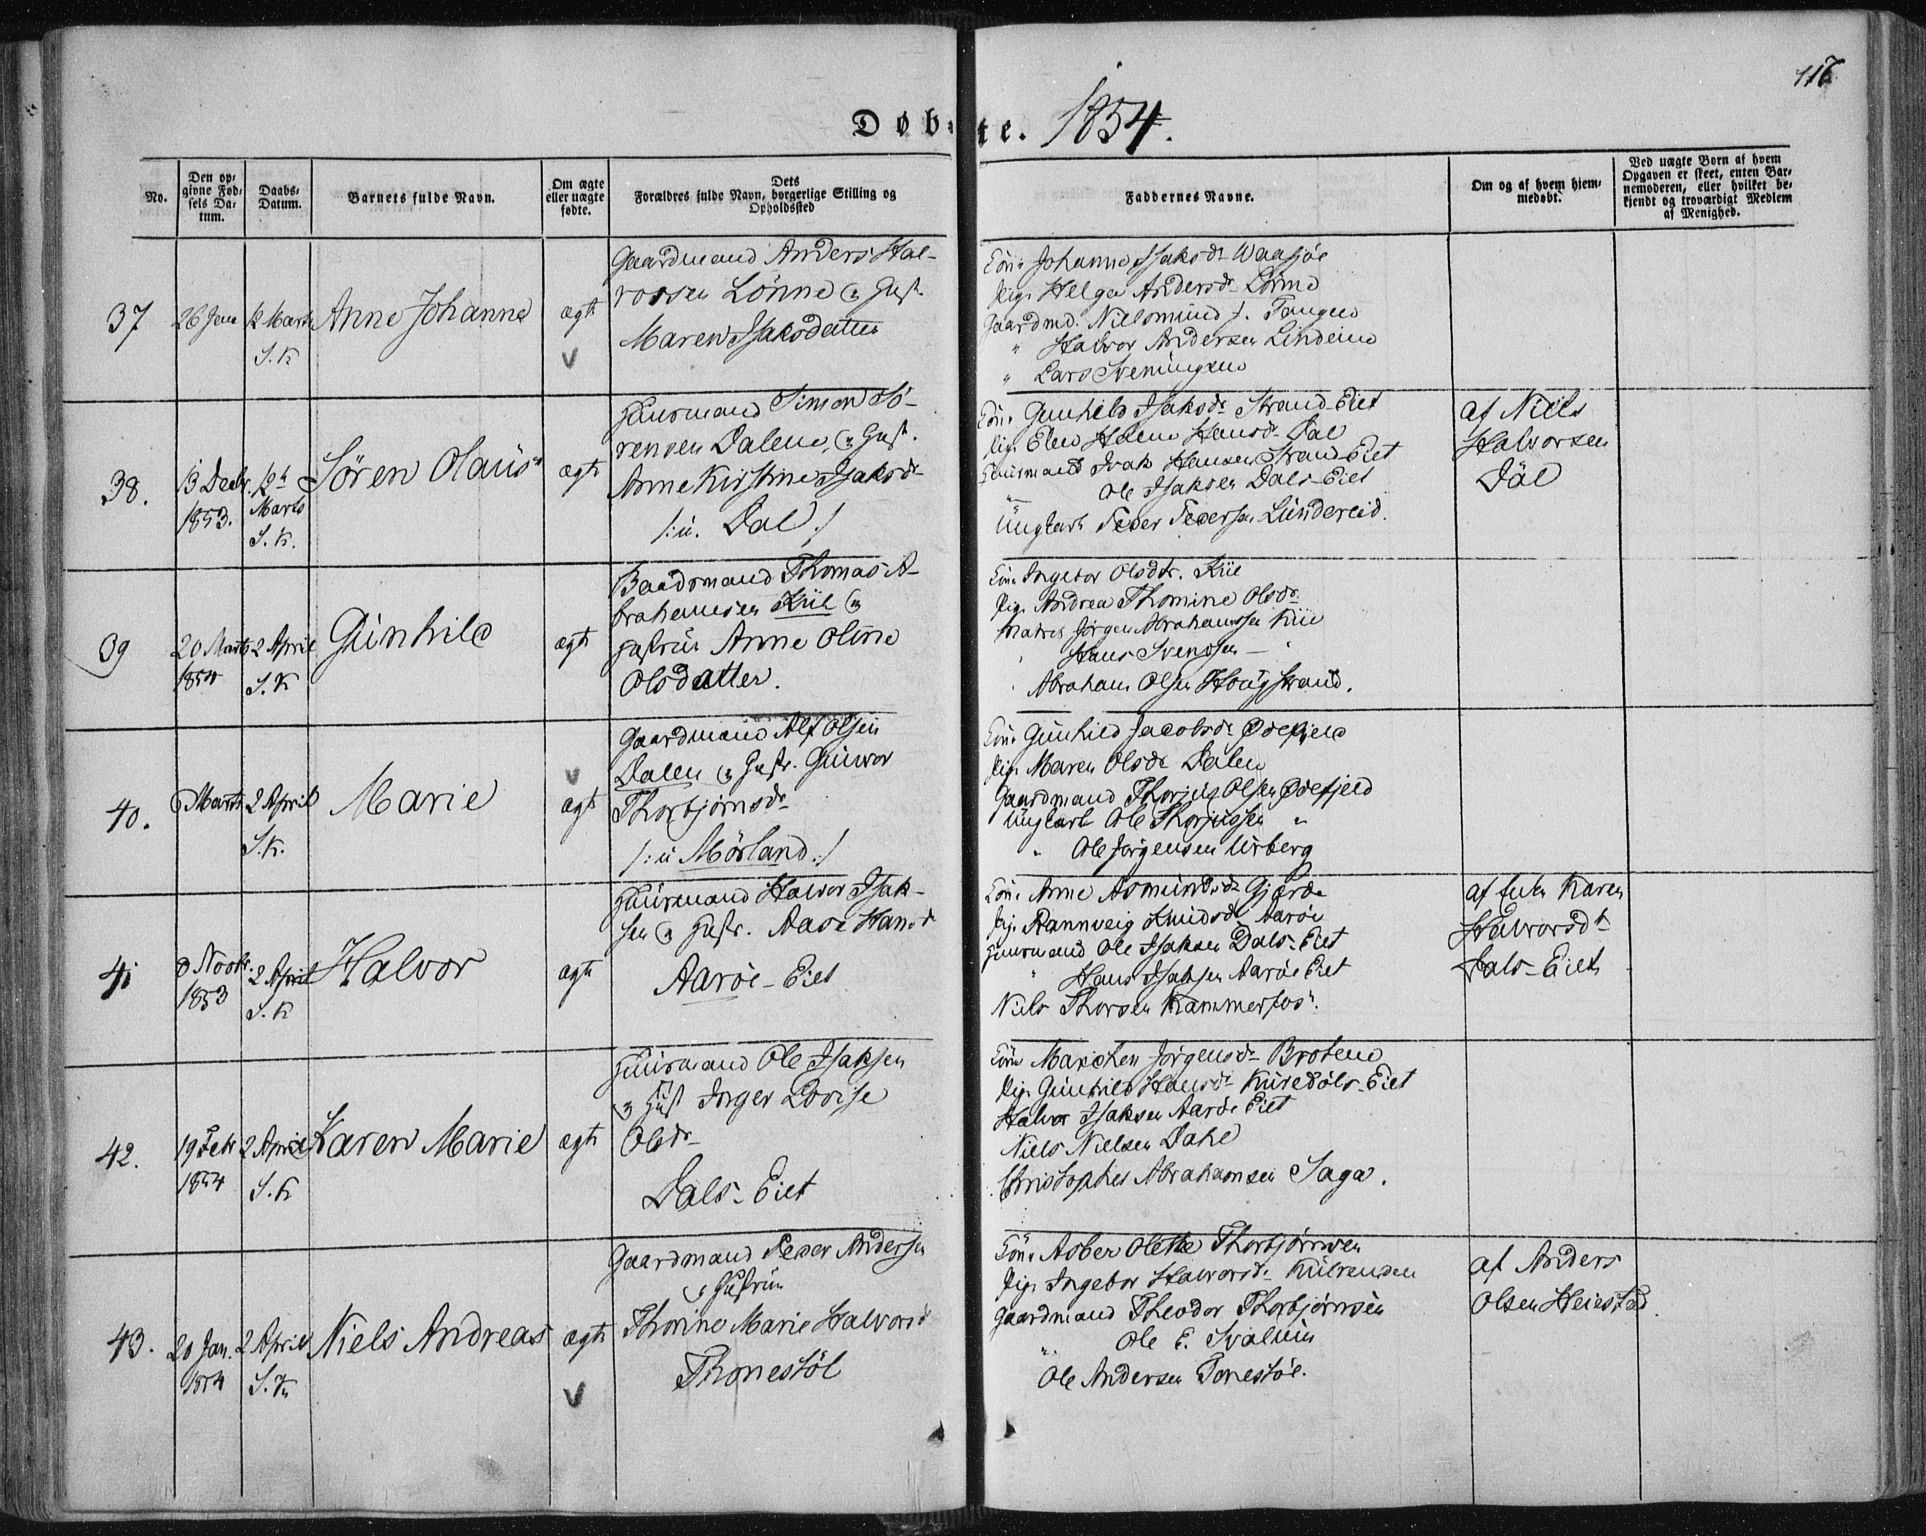 117
Døbte. 1854.
No.
Den opgivne Fødsels Datum.
Daabs-Datum.
Barnets fulde Navn.
Om ægte eller uægte fødte.
Dets Forældres fulde Navn, borgerlige Stilling og Opholdssted
Faddernes Navne.
Om og af hvem hjemmedøbt.
Ved uægte Born af hvem Opgaven er skeet, enten Barnemoderen, eller hvilket bekjendt og troværdigt Medlem af Menighed.
37
26 Jan
12 Marts
S. K
Anne Johanne
ægte
Gaardmand Anders Hal-
vorsen Lönne & Hust.
Maren Isaksdatter
Kone Johanne Isaksdr Waasjöe
Pige Helga Andersdr Lönne
Gaardmd. Nielsmund J. Tangen
" Halvor Andersen Lindeim
" Lars Sveningsen
38.
13 Decbr.
1853.
12te
Marts
S. K.
Sören Olaus
ægte
Huusmand Simon Sö-
rensen Dalene, & Hust.
Anne Kirstine Isaksdr
/: u. Dal :/
Kone Gunhild Isaksdr Strand-Eiet
Pige Elen Helene Hansdr Dal
Huusmand Isak Hansen Strand-Eiet
" Ole Isaksen Dals-Eiet
Ungkarl Peder Pedersen Lundereid.
af Niels
Halvorsen
Dal
39
20 Marts
1854
2 April
S. K
Gunhild
ægte
Baadsmand Thomas A-
brahamsen Kiil &
Hustru Anne Oline
Olsdatter.
Kone Ingebor Olsdtr. Kiil
Pige Andrea Thomine Olsdr
Matros Jörgen Abrahamsen Kiil
" Hans Svendsen - "
" Abraham Olsen Hougstrand.
40.
Marts
2 April
S. K.
Marie
ægte
Gaardmand Alf Olsen
Dalen & Hustr. Gunvor
Thorbjörnsdr
/: u Mörland :/
Kone Gunhild Jacobsdr Ödefjeld
Pige Maren Olsdr Dalen
Gaardmand Thorjus Olsen Ödefjeld
Ungkarl Ole Thorjussen "
" Ole Jörgensen Urberg
41
8 Novbr.
1853
2 April
S. K
Halvor
ægte
Huusmand Halvor Isak-
sen & Hustr. Aase Hansdr
Aaröe-Eiet
Kone Anne Asmundsdr Gjerde
Pige Rannveig Knudsdr Aaröe
Huusmand Ole Isaksen Dals-Eiet
" Hans Isaksen Aaröe Eiet
Niels Thorsen Kammerfos
af Enke Karen
Halvorsdr
Dals-Eiet
42.
19 Febr
1854
2 April
S. K
Karen Marie
ægte
Huusmand Ole Isaksen
& Hust Inger Lovise
Olsdr
Dals-Eiet
Kone Marichen Jörgensdr Brotene
Pige Gunhild Hansdr Kuredöls-Eiet
Halvor Isaksen Aaröe Eiet
Niels Nielsen Dahl
Christopher Abrahamsen Saga.
43.
20 Jan.
1854
2 April
S. K
Niels Andreas
ægte
Gaardmand Peder Andersen
& Hustru
Thorine Marie Halvorsdr
Thonestöl
Kone Asber Olette Thorbjörnsen
Pige Ingebor Halvorsdr Kulvenden
Gaardmand Theodor Thorbjörnsen
" Ole E. Svalein
Ole Andersen Tonestöl.
af Anders
Olsen Heiestad.